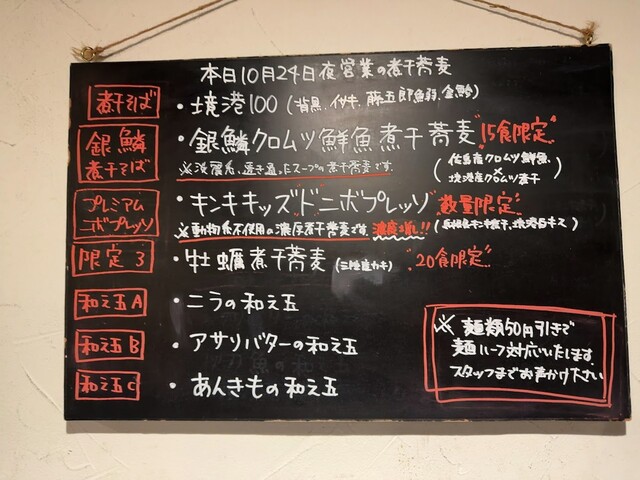 本日10月24日夜営業の煮干蕎麦
煮干そば ・境港100 (背黒、イサキ、藤五郎鰯、金鯵)
銀鱗煮干そば ・銀鱗クロムツ鮮魚煮干蕎麦 15食限定
(佐島産クロムツ鮮魚 × 境港産クロムツ煮干)
※淡麗系、透き通ったスープの煮干蕎麦です
プレミアムニボプレッソ ・キンキキッズドニボプレッソ 数量限定
※動物系不使用の濃厚煮干蕎麦です 濃度増し!!
限定3 ・牡蠣煮干蕎麦 (三陸産カキ) 20食限定
和え玉A ・ニラの和え玉
和え玉B ・アサリバターの和え玉
和え玉C ・あんきもの和え玉
※ 麺類50円引きで
麺ハーフ対応いたします
スタッフまでお声かけ下さい